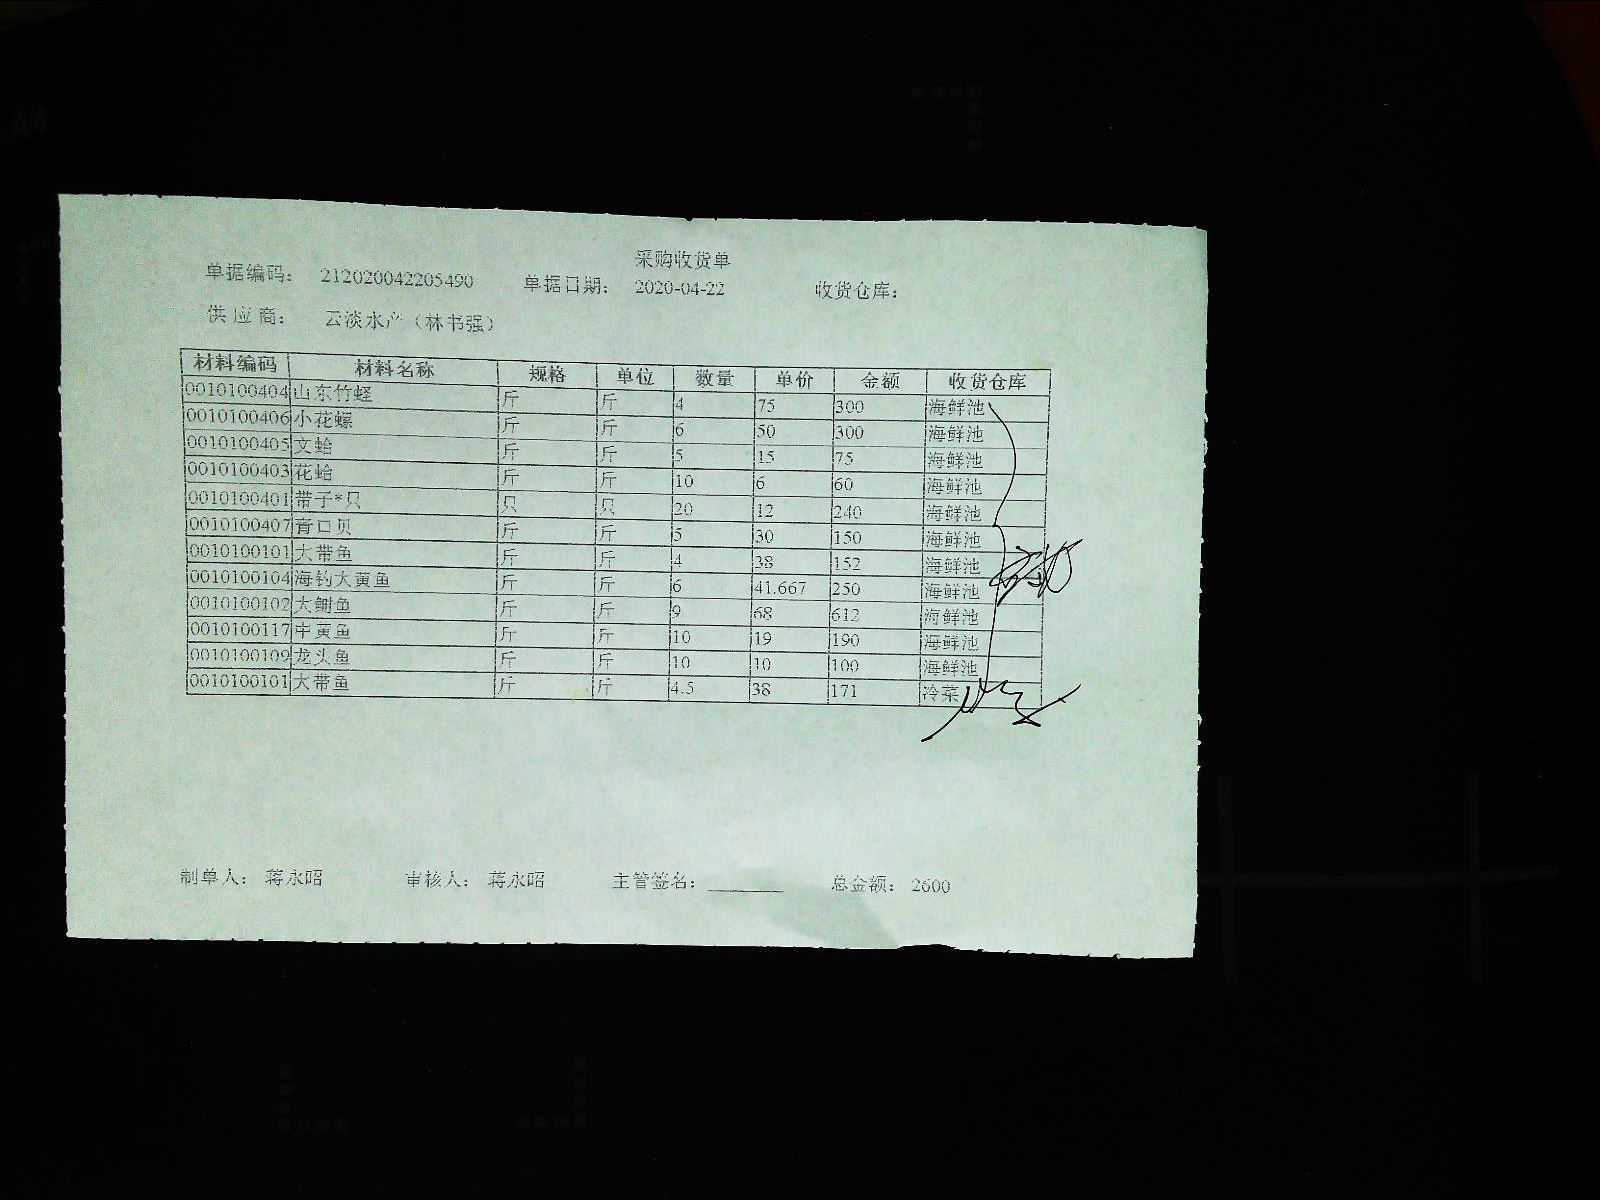 采购收货单
单据编码: 212020042205490 单据日期: 2020-04-22 收货仓库:
供应商: 云淡水产（林书强）
材料编码 材料名称 规格 单位 数量 单价 金额 收货仓库
0010100404 山东竹蛏 斤 斤 4 75 300 海鲜池
0010100406 小花螺 斤 斤 6 50 300 海鲜池
0010100405 文蛤 斤 斤 5 15 75 海鲜池
0010100403 花蛤 斤 斤 10 6 60 海鲜池
0010100401 带子*只 只 只 20 12 240 海鲜池
0010100407 青口贝 斤 斤 5 30 150 海鲜池
0010100101 大带鱼 斤 斤 4 38 152 海鲜池
0010100104 海钓大黄鱼 斤 斤 6 41.667 250 海鲜池
0010100102 大鲳鱼 斤 斤 9 68 612 海鲜池
0010100117 中黄鱼 斤 斤 10 19 190 海鲜池
0010100109 龙头鱼 斤 斤 10 10 100 海鲜池
0010100101 大带鱼 斤 斤 4.5 38 171 冷菜
制单人: 蒋永昭 审核人: 蒋永昭 主管签名: 总金额: 2600